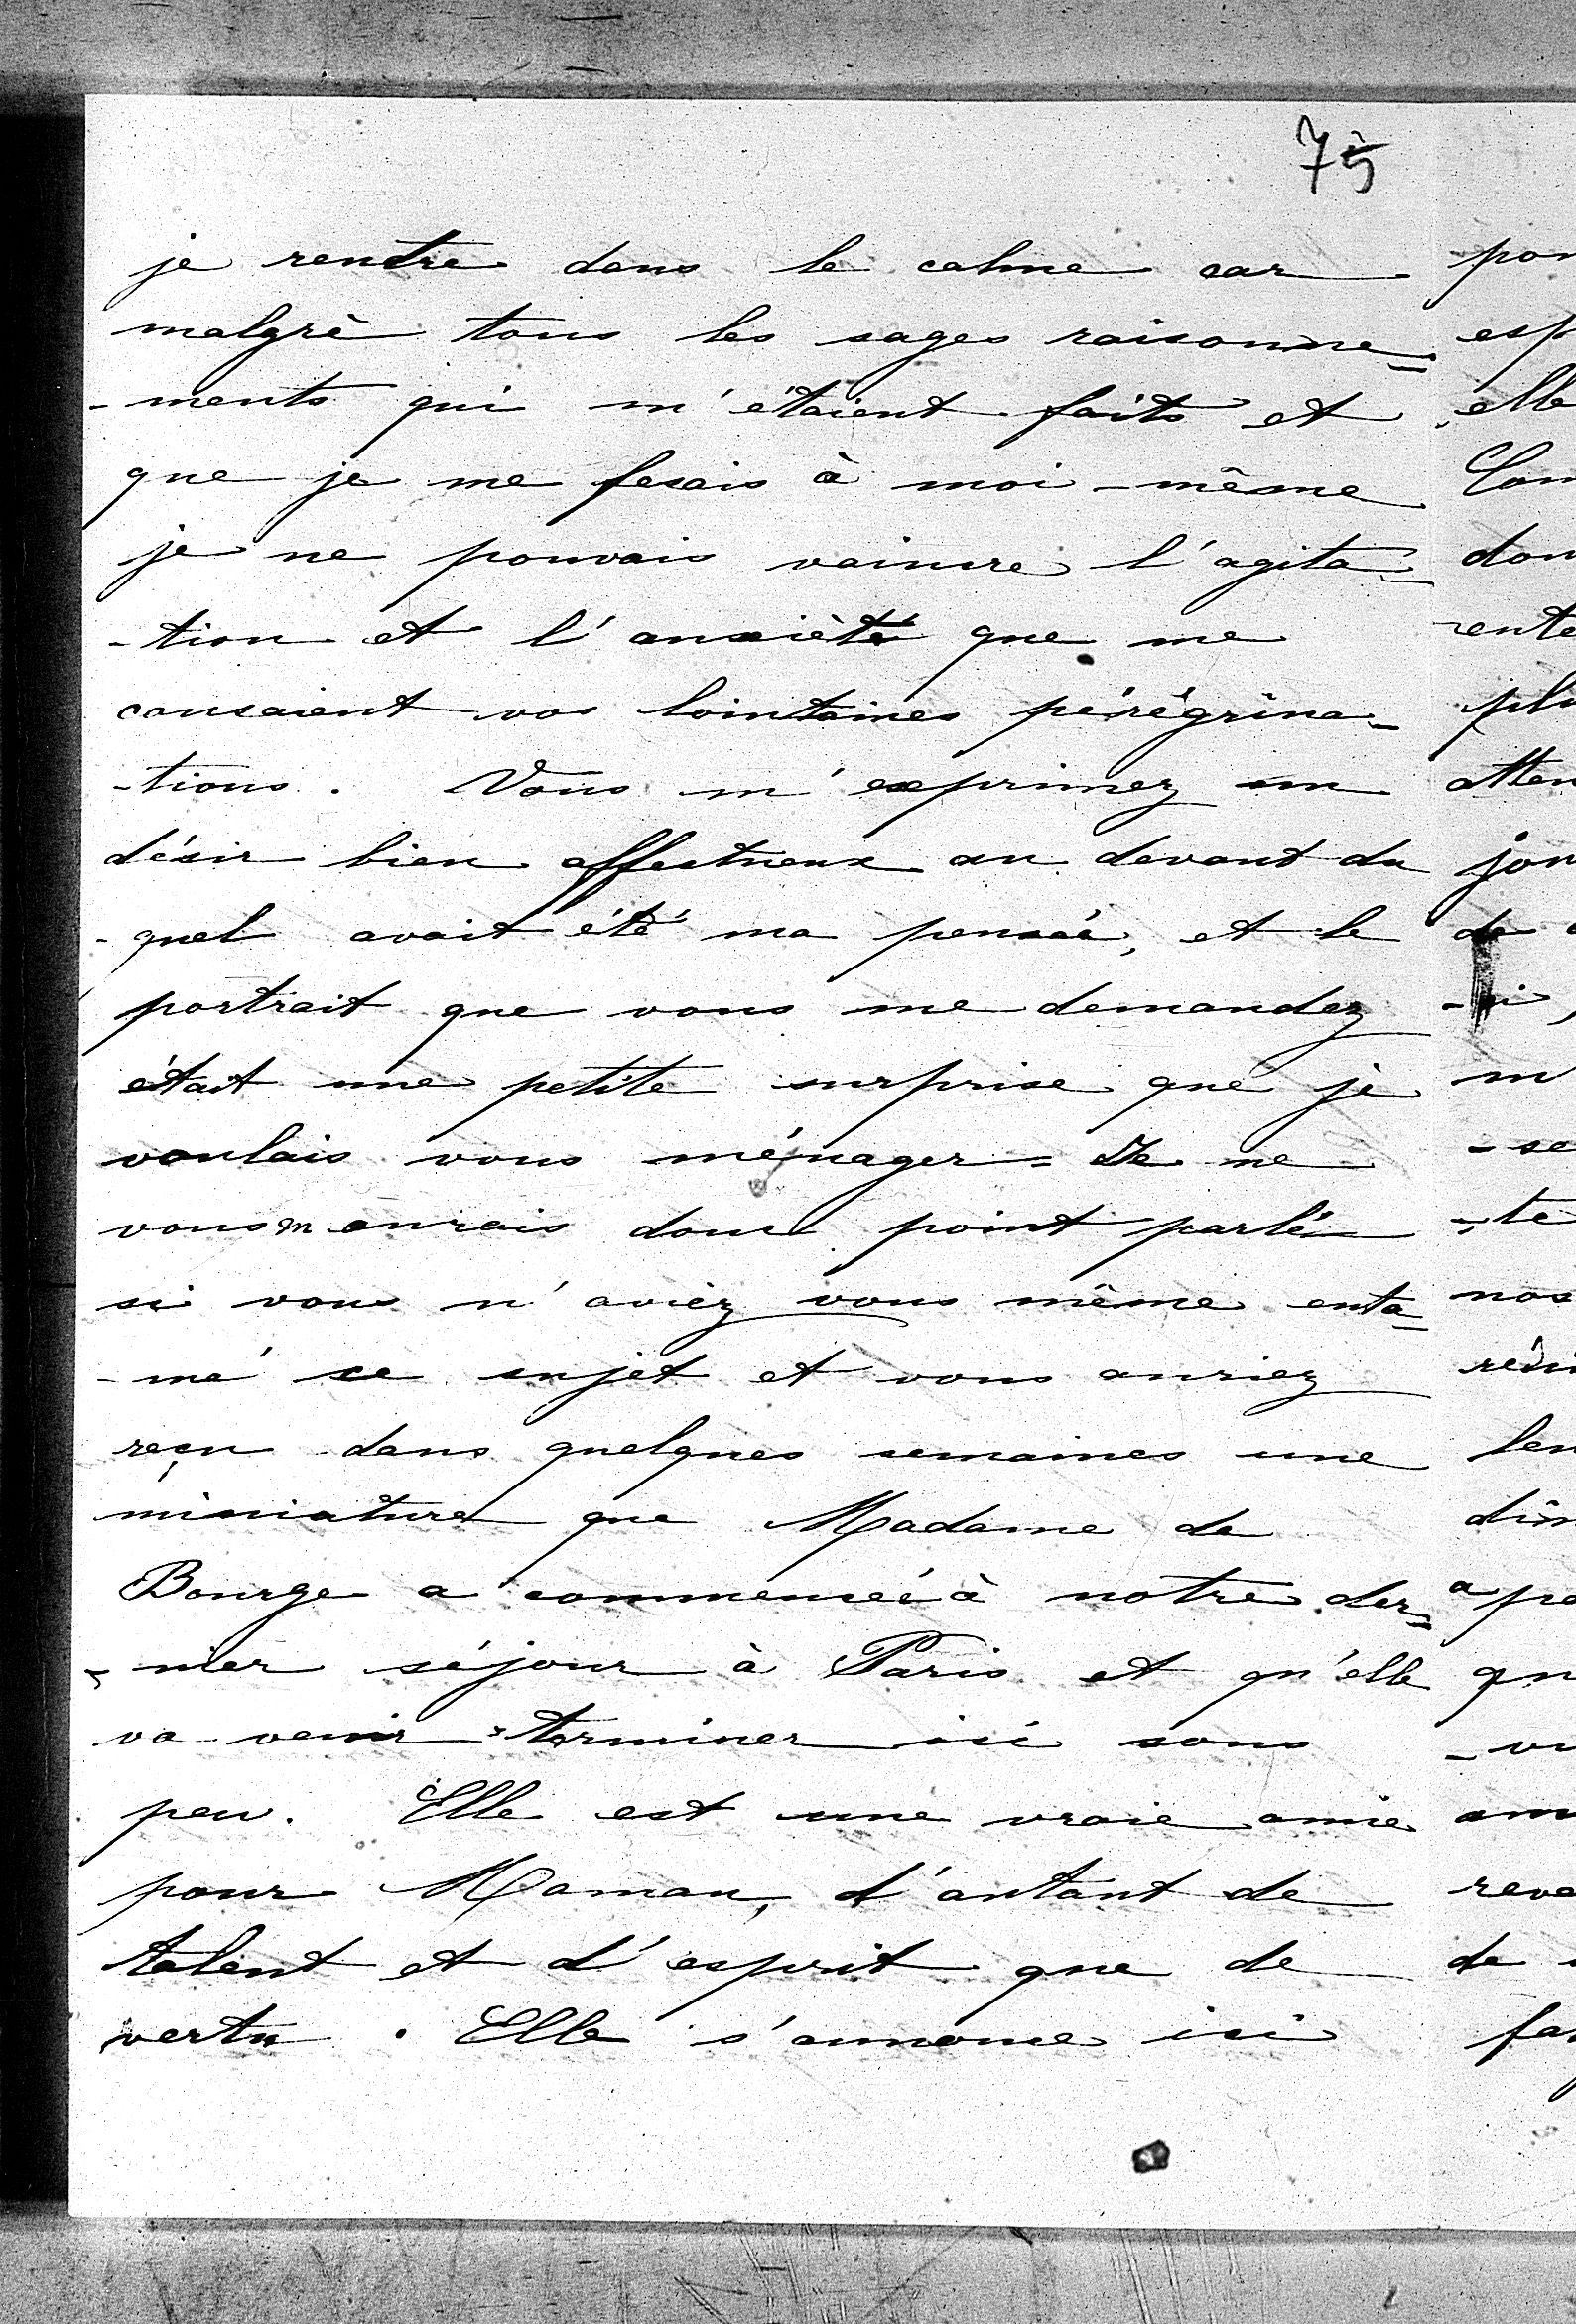 75
je rentre dans le calme car
malgré tous les sages raisonne=
-ments qui m'étaient faits et
que je me fesais à moi-même
je ne pouvais vaincre l'agita=
-tion et l'anxiété que me
causaient vos lointaines pérégrina-
-tions. Vous m'exprimez un
désir bien affectueux au devant du
-quel avait été ma pensée, et le
portrait que vous me demandez
était une petite surprise que je
voulais vous ménager = Je ne
vous en aurais donc point parlé
si vous n'aviez vous même enta=
-mé ce sujet et vous auriez
reçu dans quelques semaines une
miniature que Madame de
Bourge a commencé à notre der=
-nier séjour à Paris et qu'elle
va venir terminer ici sous
peu. Elle est une vraie amie
pour Maman, d'autant de
talent et d'esprit que de
vertu. Elle s'annonce ici